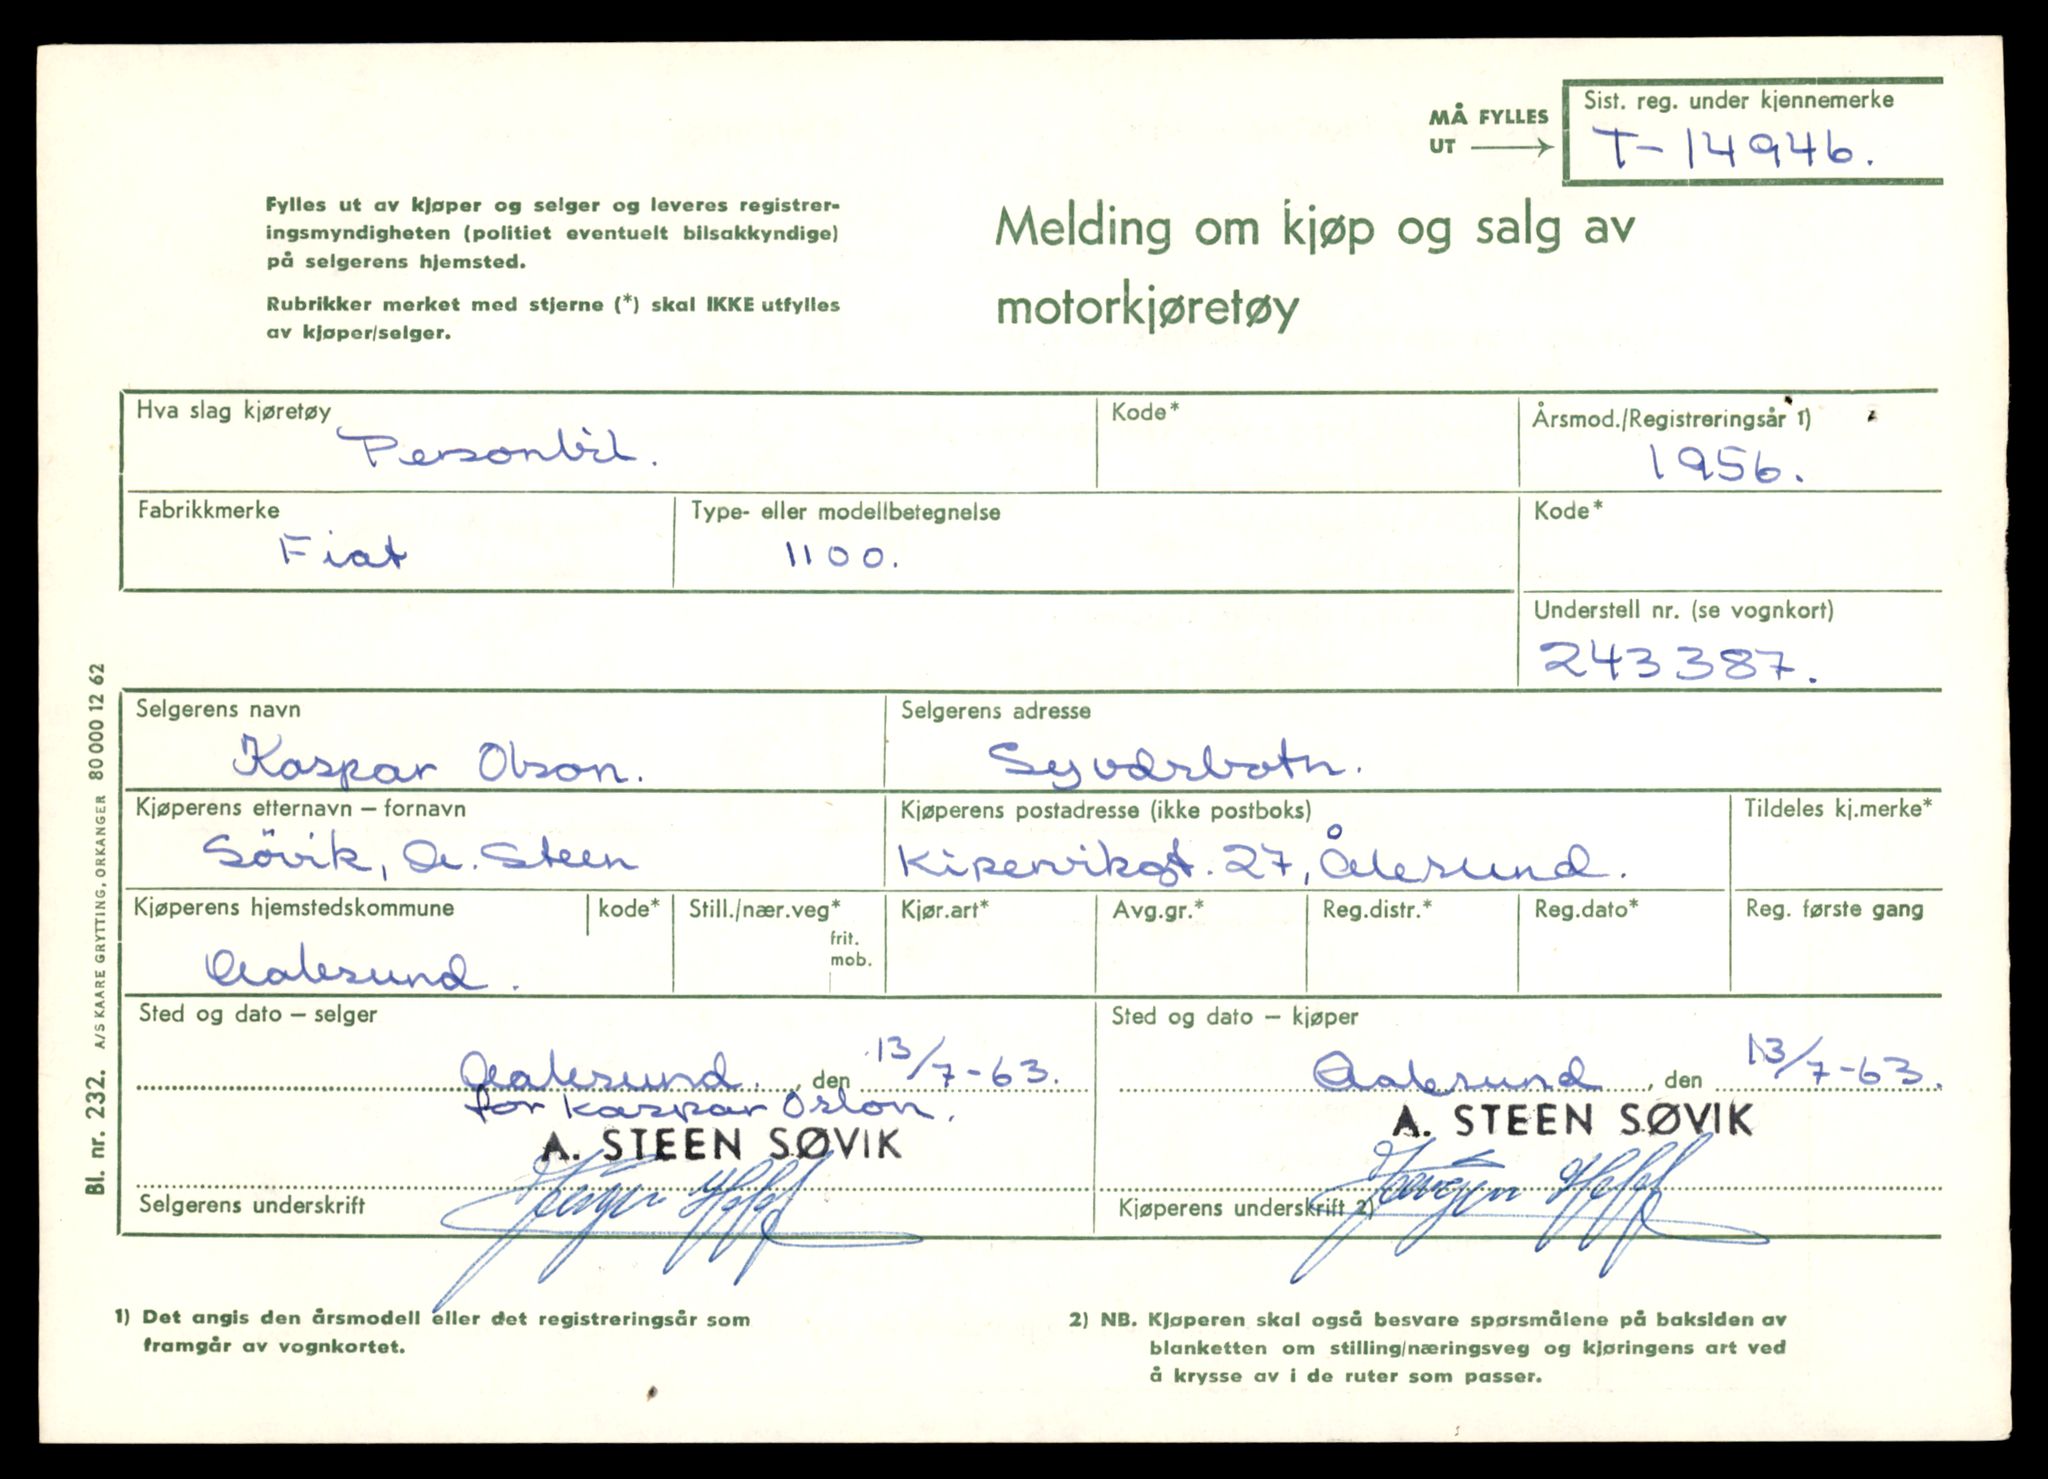 MÅ FYLLES
UT
Sist. reg. under kjennemerke
T-14946.
Fylles ut av kjøper og selger og leveres registrer-
ingsmyndigheten (politiet eventuelt bilsakkyndige)
på selgerens hjemsted.
Rubrikker merket med stjerne (*) skal IKKE utfylles
av kjøper/selger.
Melding om kjøp og salg av
motorkjøretøy
Hva slag kjøretøy
Personbil.
Kode*
Årsmod./Registreringsår 1)
1956.
Fabrikkmerke
Fiat
Type- eller modellbetegnelse
1100.
Kode*
Understell nr. (se vognkort)
243387.
Selgerens navn
Kaspar Olson.
Selgerens adresse
Syvdsbotn.
Kjøperens etternavn – fornavn
Søvik, A. Steen
Kjøperens postadresse (ikke postboks)
Kipervikgt. 27, Ålesund.
Tildeles kj.merke*
Kjøperens hjemstedskommune
Aalesund.
kode*
Still./nær.veg*
frit.
mob.
Kjør.art*
Avg.gr.*
Reg.distr.*
Reg.dato*
Reg. første gang
Sted og dato – selger
Aalesund, den 13/7-63.
for Kaspar Oslon.
A. STEEN SØVIK
Selgerens underskrift
Sted og dato – kjøper
Aalesund, den 13/7-63.
A. STEEN SØVIK
Kjøperens underskrift 2)
1) Det angis den årsmodell eller det registreringsår som
framgår av vognkortet.
2) NB. Kjøperen skal også besvare spørsmålene på baksiden av
blanketten om stilling/næringsveg og kjøringens art ved
å krysse av i de ruter som passer.
Bl. nr. 232. A/S KAARE GRYTTING, ORKANGER 80 000 12 62